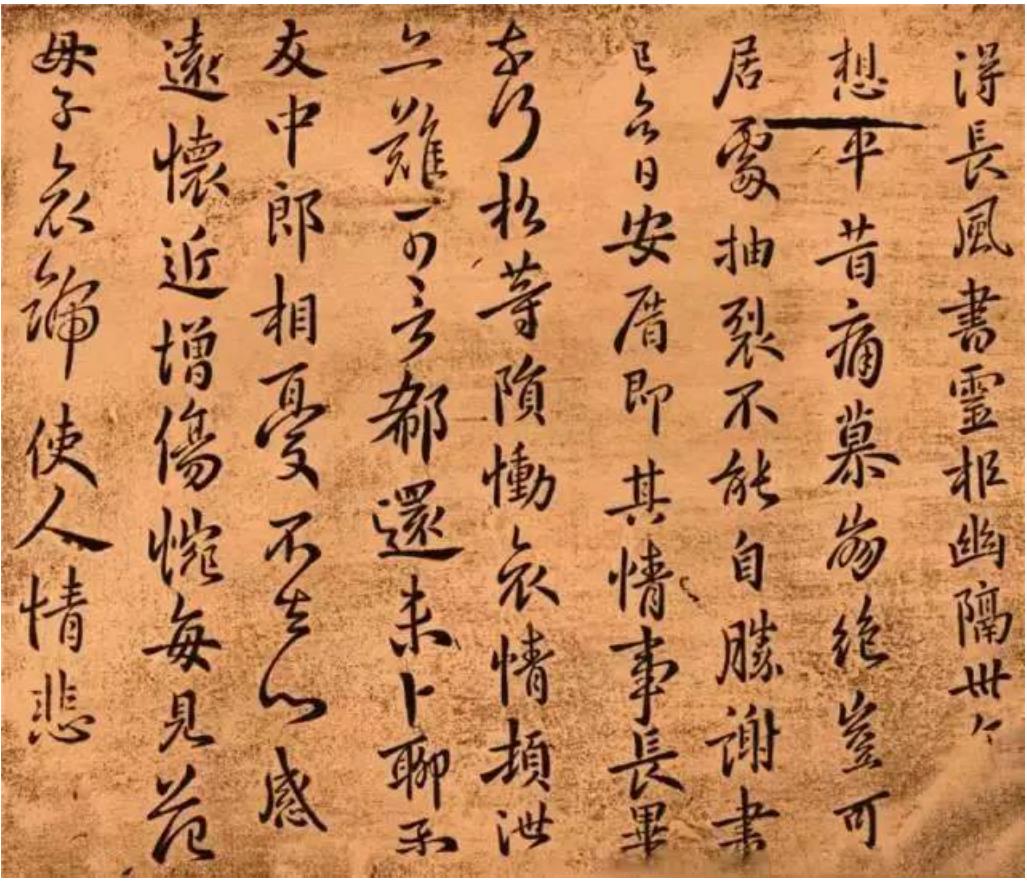 得長風書靈柩幽隔卅
想平昔痛慕崩絕豈可
居處抽裂不能自勝謝書
已令日安厝即其情事長畢
奈何松等隕慟哀情頓泄
亦難可言都還未卜聊示
友中郎相憂不去心感
遠懷近增傷惋每見范
母子哀號使人情悲